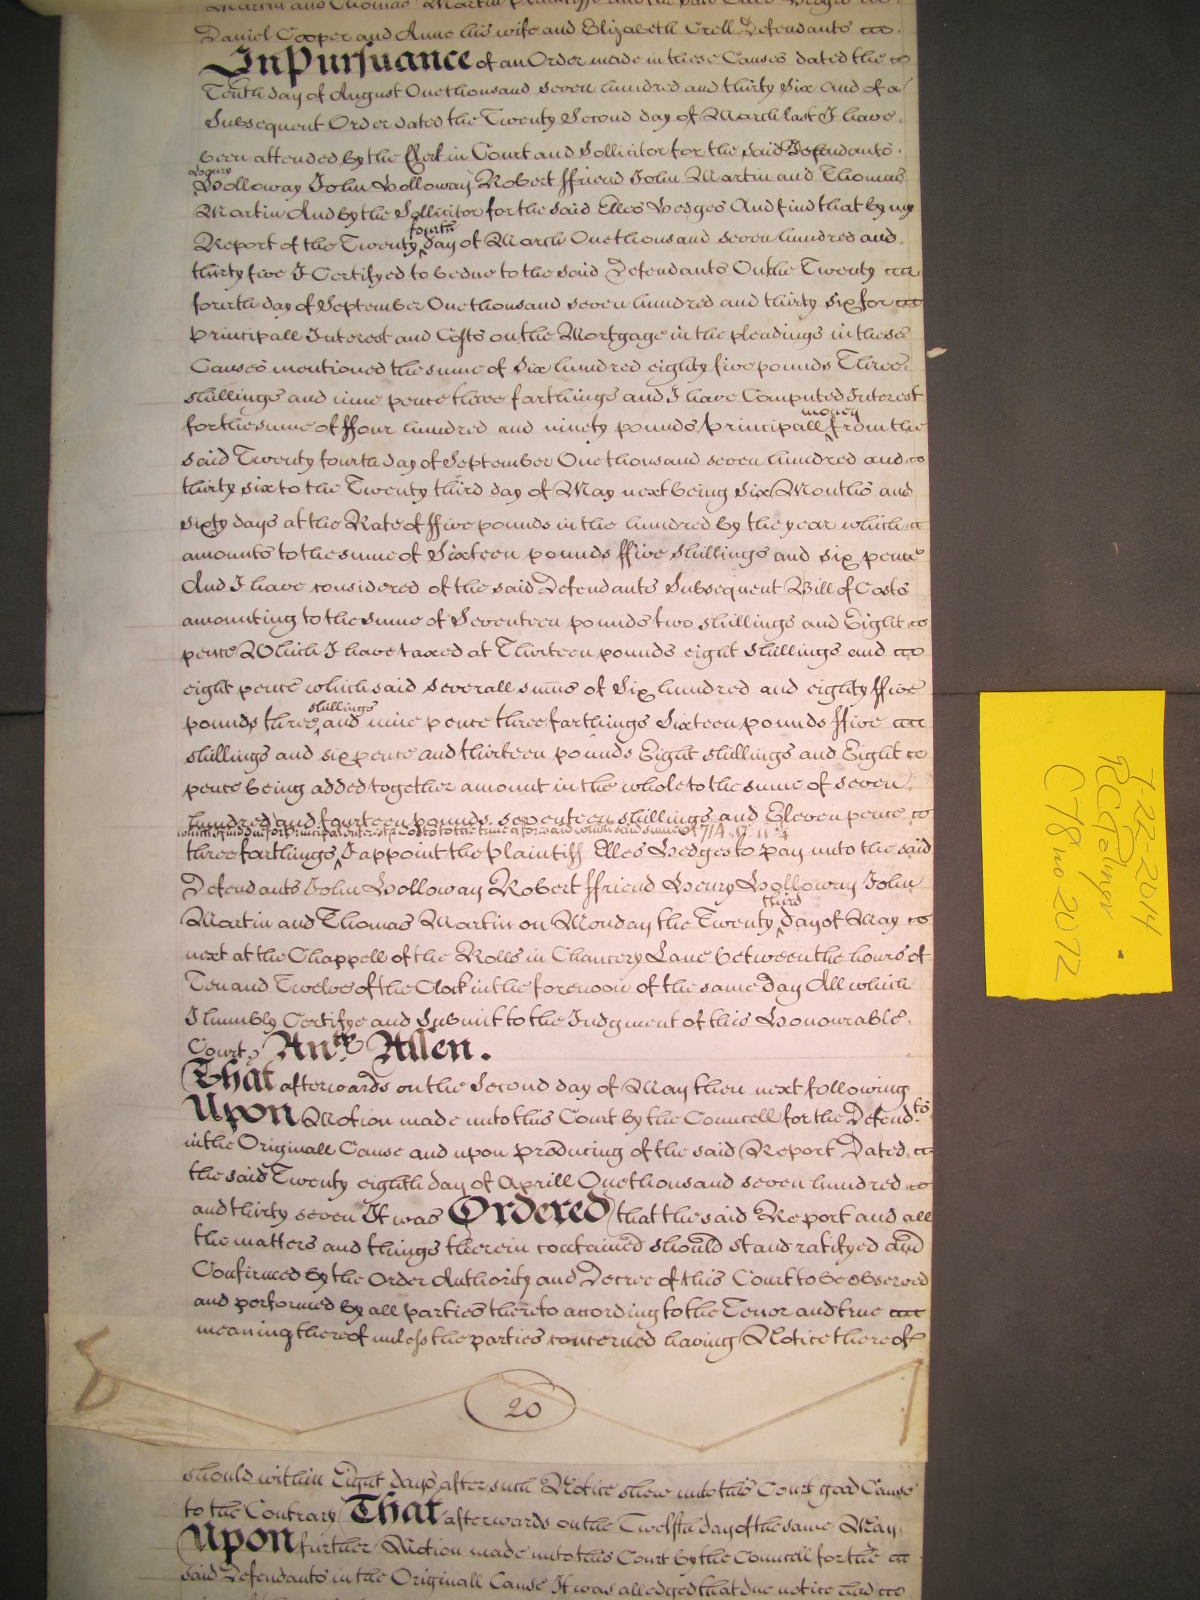 Martin and Thomas Martin Plaintiffs and the said Elles Hedges
Daniel Cooper and Anne his wife and Elizabeth Crell Defendants
In Pursuance of an Order made in these Causes dated the
Tenth day of August One thousand seven hundred and thirty Six and of a
Subsequent Order dated the Twenty Second day of March last I have
been attended by the Clerk in Court and Sollicitor for the said Defendants
Henry
Holloway John Holloway Robert ffriend John Martin and Thomas
Martin And by the Sollicitor for the said Elles Hedges And find that by my
fourth
Report of the Twenty day of March One thousand seven hundred and
thirty five I Certifyed to be due to the said Defendants On the Twenty
fourth day of September One thousand seven hundred and thirty six for
Principall Interest and Costs on the Mortgage in the pleadings in these
Causes mentioned the sume of Six hundred eighty five pounds Three
shillings and nine pence three farthings and I have Computed Interest
money
for the sume of ffour hundred and ninety pounds principall from the
said Twenty fourth day of September One thousand seven hundred and
thirty six to the Twenty third day of May next being Six Months and
sixty days at the Rate of ffive pounds in the hundred by the year which
amounts to the sume of Sixteen pounds ffive shillings and six pence
And I have considered of the said Defendants Subsequent Bill of Costs
amounting to the sume of Seventeen pounds two shillings and Eight
pence Which I have taxed at Thirteen pounds eight Shillings and
eight pence which said severall sums of Six hundred and eighty ffive
shillings
pounds three and nine pence three farthings Sixteen pounds ffive
shillings and six pence and thirteen pounds Eight shillings and Eight
pence being added together amount in the whole to the sume of seven
hundred and fourteen pounds seventeen shillings and Eleven pence
which I find due for Principal Interest & Costs to the time aforesaid which said sume of 714 : 17 : 11 : ¾
three farthings I appoint the plaintiff Elles Hedges to pay unto the said
Defendants John Holloway Robert ffriend Henry Holloway John
third
Martin and Thomas Martin on Monday the Twenty day of May
next at the Chappell of the Rolls in Chancery Lane between the hours of
Ten and Twelve of the Clock in the forenoon of the same day All which
I humbly Certifye and Submit to the Judgment of this Honourable
Court Anth Allen.
That afterwards on the Second day of May then next following
Upon Motion made unto this Court by the Councell for the Defendts
in the Originall Cause and upon producing of the said Report Dated
the said Twenty eighth day of Aprill One thousand seven hundred
and thirty seven It was Ordered that the said Report and all
the matters and things therein contained should stand ratifyed and
Confirmed by the Order Authority and Decree of this Court to be observed
and performed by all parties thereto according to the Tenor and true
meaning thereof unless the parties concerned having Notice thereof
20
should within Eight days after such Notice shew unto this Court good Cause
to the Contrary That afterwards on the Twelfth day of the same May
Upon further Motion made unto this Court by the Councell for the
said Defendants in the Originall Cause It was alledged that due notice had
7-22-2014
RCPalmer
C78 no 2072